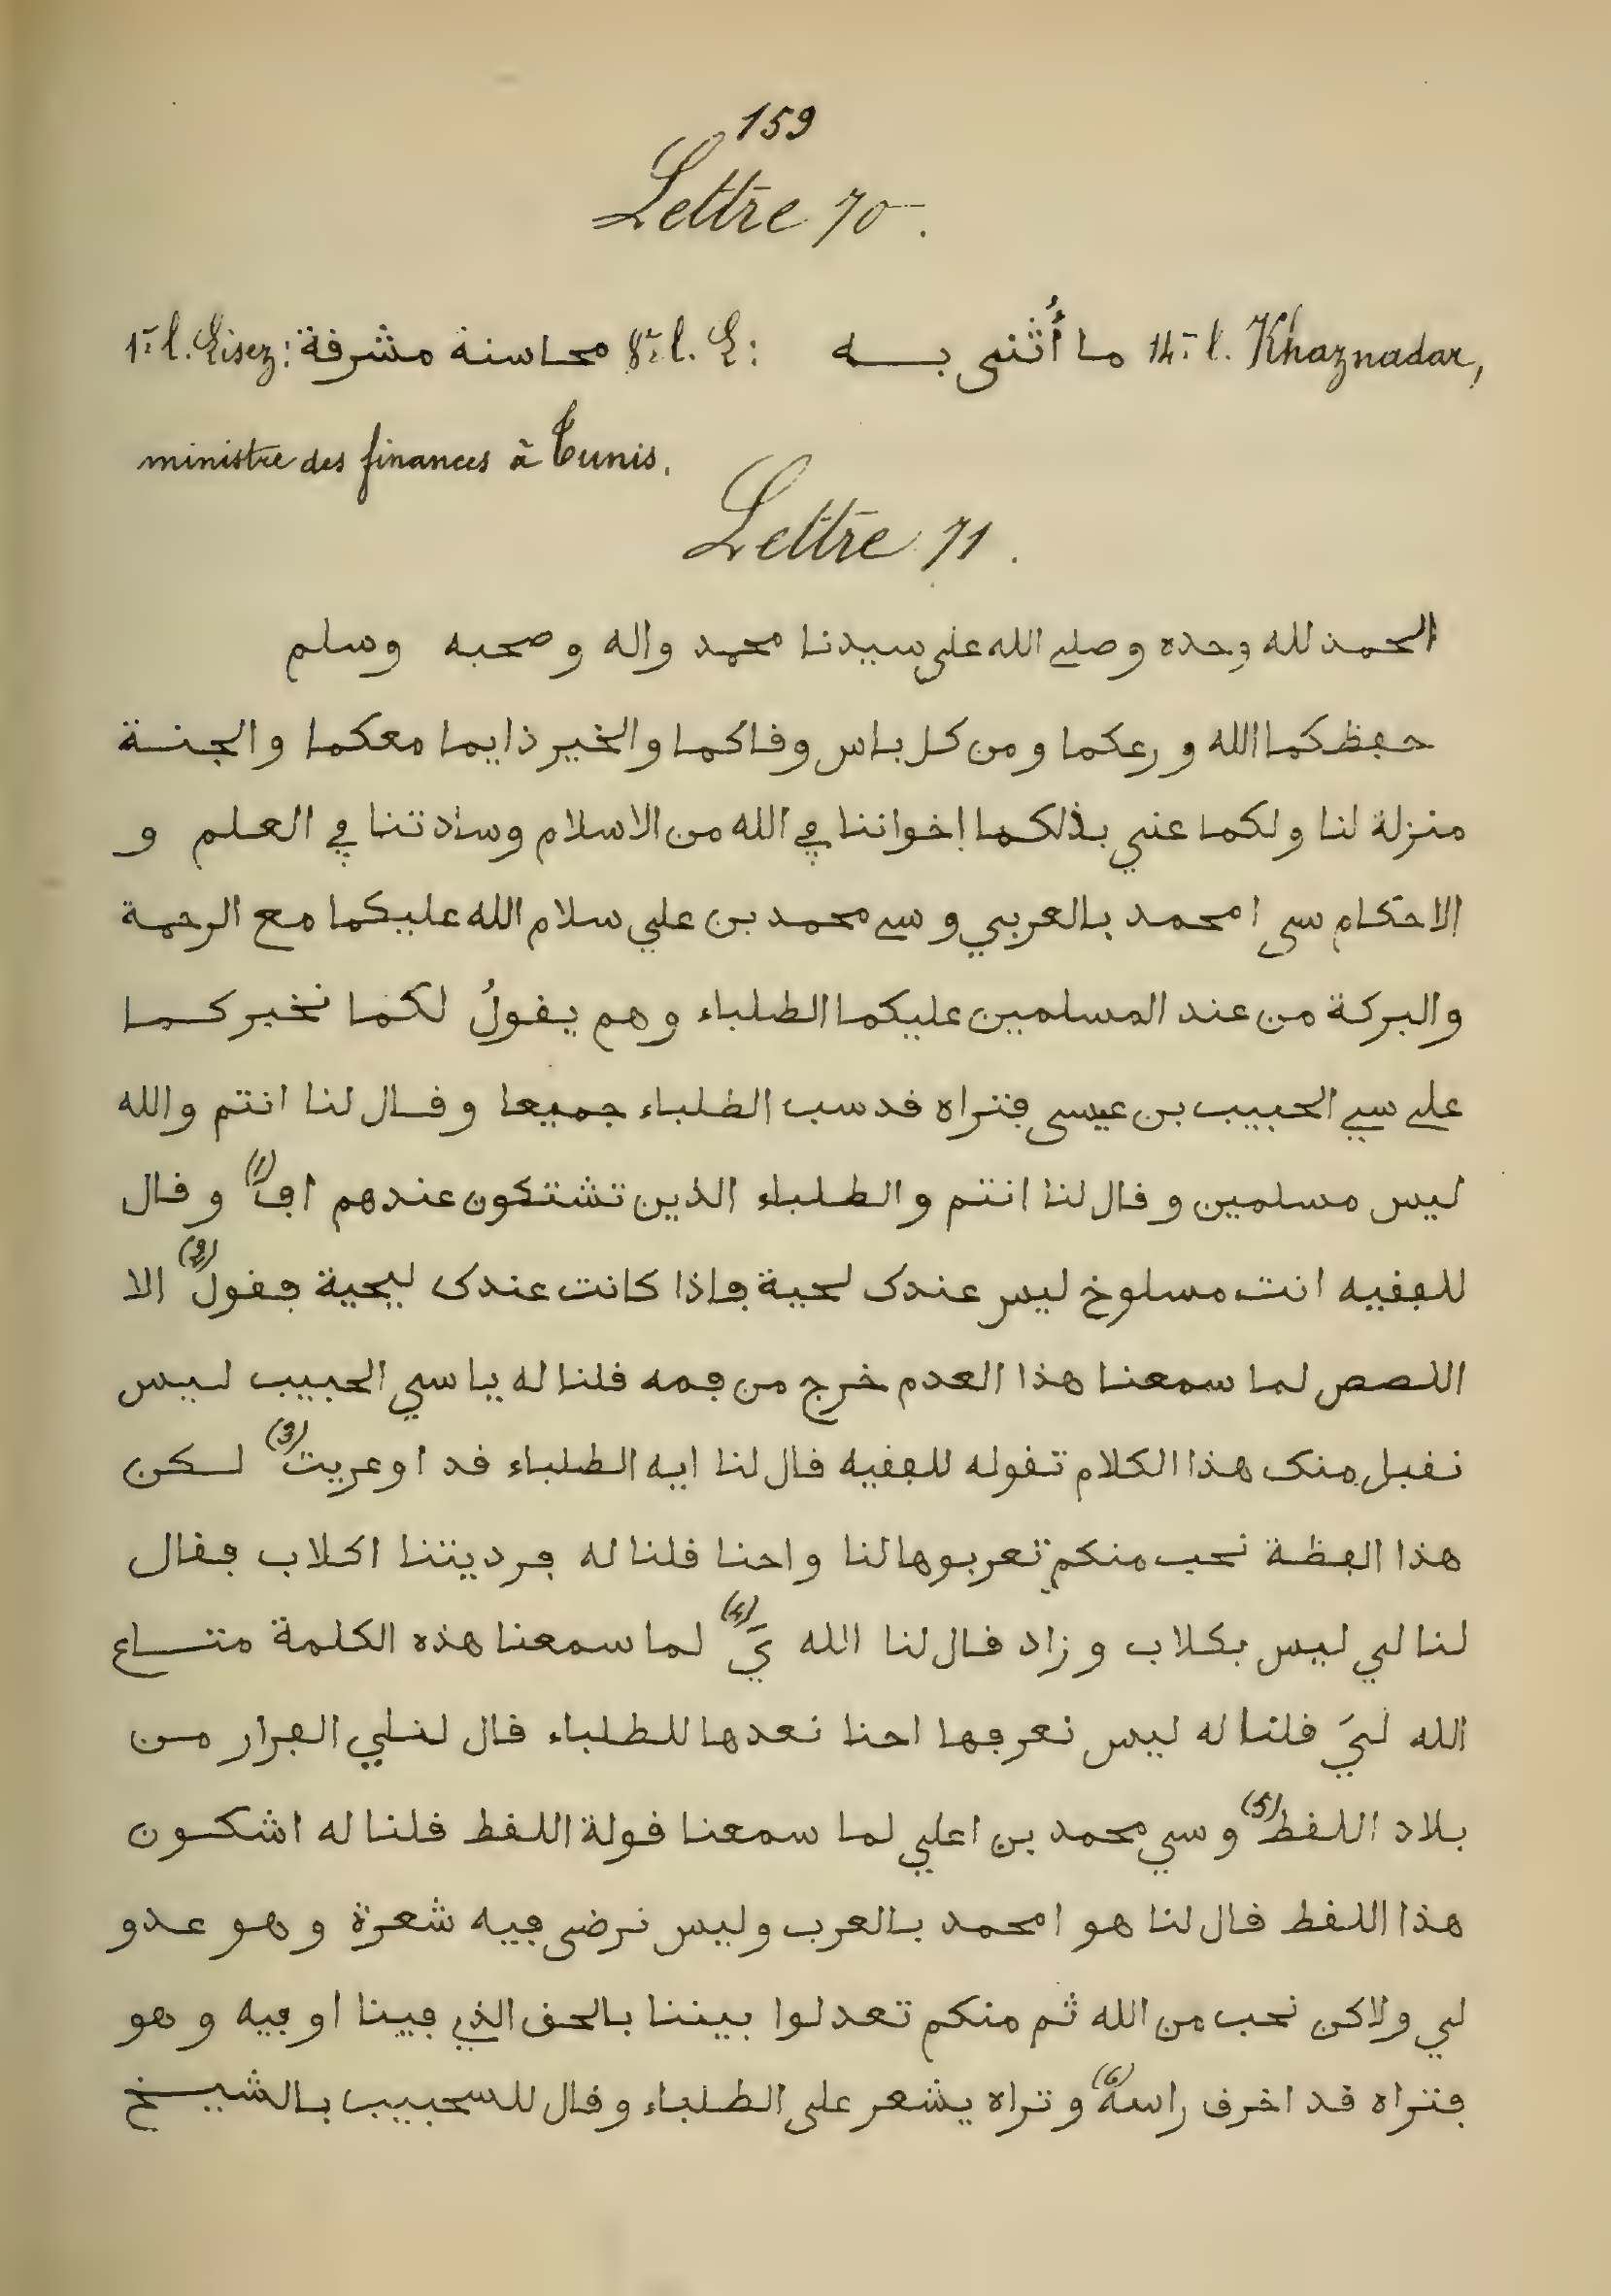 159
Lettre 70.
1re l. Lisez: محاسنه مشرقة 8e l. L: ما أُثنى به 14e l. Khaznadar,
ministre des finances à Tunis.
Lettre 71.
الحمد لله وحده وصلى الله على سيدنا محمد واله وصحبه وسلم
حفظكما الله ورعكما ومن كل باس وقاكما والخير ذايما معكما والجنة
منزلة لنا ولكما عني بذلكما إخواننا في الله من الاسلام وسادتنا في العلم و
الاحكام سى امحمد بالعربي وسى محمد بن علي سلام الله عليكما مع الرحمة
والبركة من عند المسلمين عليكما الطلباء وهم يقولُ لكما نخبركما
على سي الحبيب بن عيسى فتراه قد سب الطلباء جميعا وقال لنا انتم والله
ليس مسلمين وقال لنا انتم والطلباء الذين تشتكون عندهم افَّ (1) وقال
للفقيه انت مسلوخ ليس عندك لحية فاذا كانت عندك ليحية فقولُ (2) الا
اللصص لما سمعنا هذا العدم خرج من فمه قلنا له يا سي الحبيب ليس
نقبل منك هذا الكلام تقوله للفقيه قال لنا ايه الطلباء قد اوعريت (3) لكن
هذا الفظة نحب منكم تعربوها لنا واحنا قلنا له فرديتنا اكلاب فقال
لنا لي ليس بكلاب وزاد قال لنا الله يَّ (4) لما سمعنا هذه الكلمة متاع
الله لَيَّ قلنا له ليس نعرفها احنا نعدها للطلباء قال لنلي الفرار من
بلاد اللفط (5) وسي محمد بن اعلي لما سمعنا قولة اللفط قلنا له اشكون
هذا اللفط قال لنا هو امحمد بالعرب وليس نرضى فيه شعرة وهو عدو
لي ولاكن نحب من الله ثم منكم تعدلوا بيننا بالحق الذي فينا او فيه وهو
فتراه قد اخرف راسه (6) وتراه يشعر على الطلباء وقال للسحبيب بالشيخ